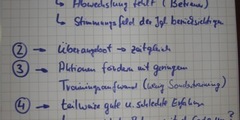 ↳ Abwechslung fehlt (Betreuer)
↳ Stimmungsfeld der Jgl berücksichtigen
② → Überangebot → zeitgleich
③ → Aktionen fördern mit geringem
Trainingsaufwand (wenig Sondertraining)
④ → teilweise gute u. schlechte Erfahr